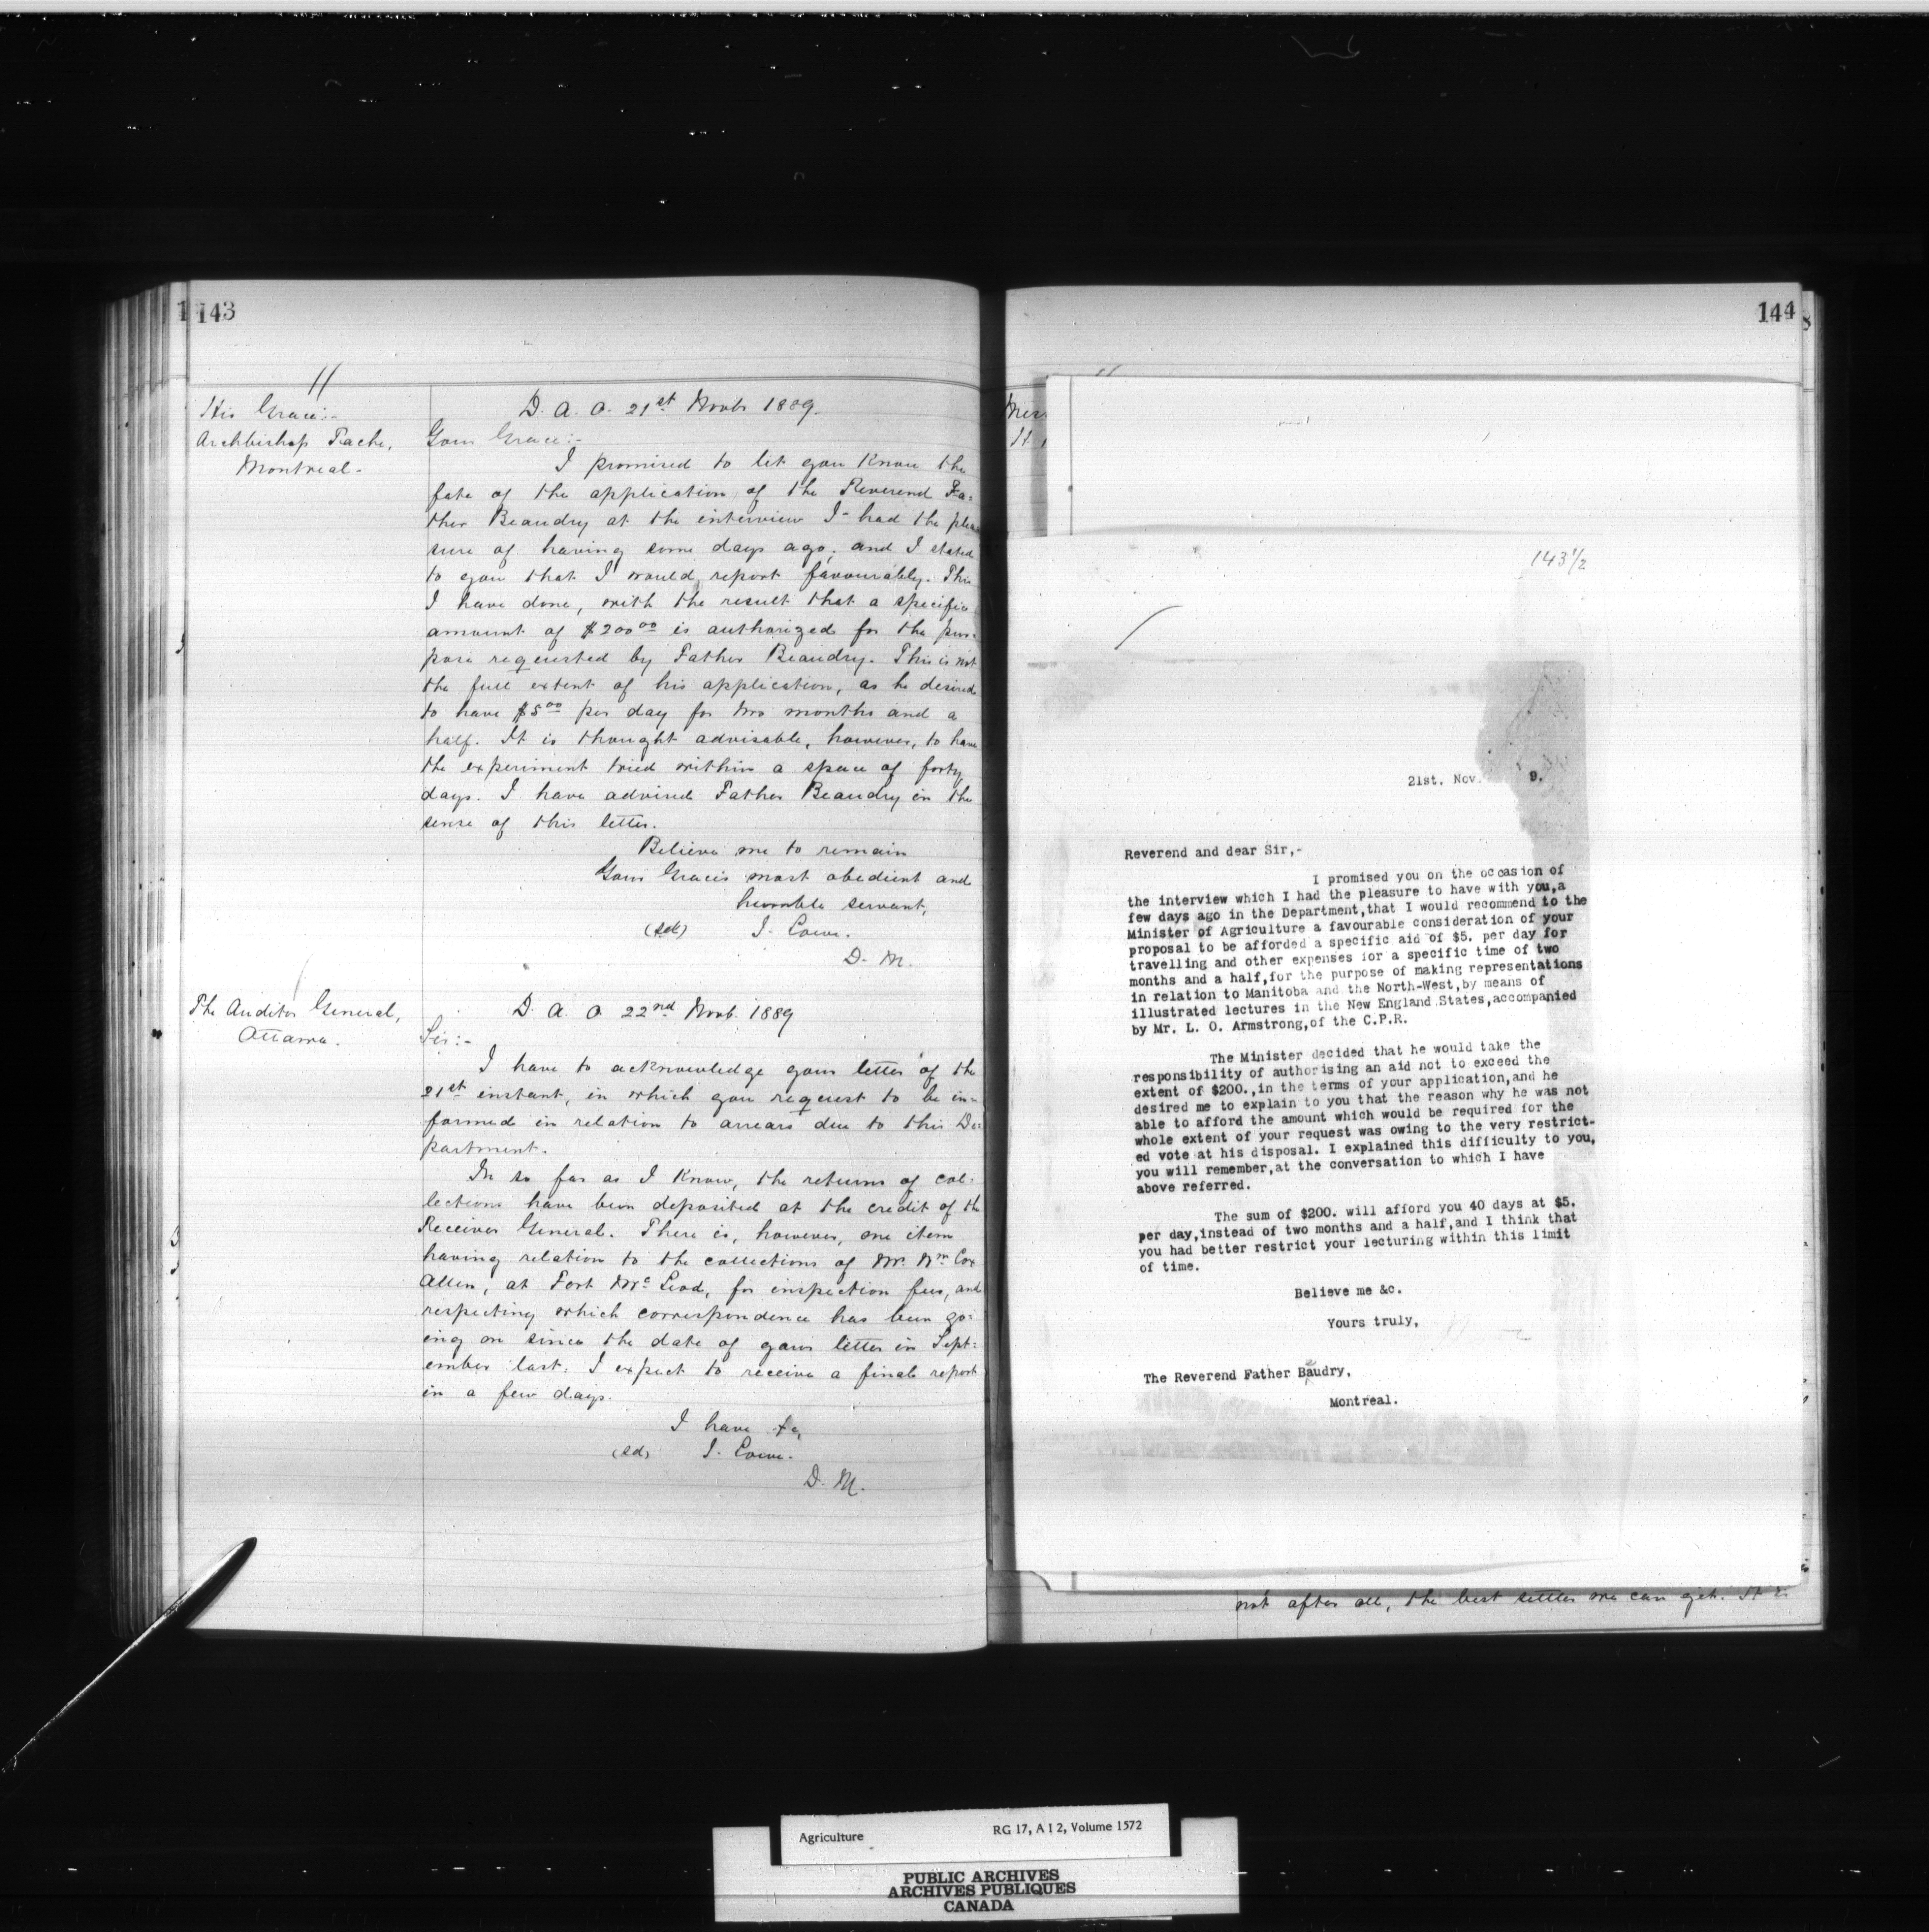 143
His Grace:-
Archbishop Tache,
Montreal-
D. A. O. 21st Novbr 1889.
Your Grace:-
I promised to let you know the
fate of the application of the Reverend Fa=
ther Beaudry at the interview I had the plea
sure of having some days ago; and I stated
to you that I would report favourably. This
I have done, with the result that a specific
amount of $200.00 is authorized for the pur-
pose requested by Father Beaudry. This is not
the full extent of his application, as he desired
to have $5.00 per day for two months and a
half. It is thought advisable, however, to have
the experiment tried within a space of forty
days. I have advised Father Beaudry in the
sense of this letter.
Believe me to remain
Your Grace's most obedient and
humble servant,
(sd) J. Lowe.
D. M.
The Auditor General,
Ottawa.
D. A. O 22nd Novb. 1889
Sir:-
I have to acknowledge your letter of the
21st instant, in which you request to be in=
formed in relation to arrears due to this De=
partment.
In so far as I know, the returns of col=
lections have been deposited at the credit of the
Receiver General. There is, however, one item
having relation to the collections of Mr. Wm Cox
Allen, at Fort McLeod, for inspection fees, and
respecting which correspondence has been go=
ing on since the date of your letter in Sept=
ember last. I expect to receive a final report
in a few days.
I have &c,
(sd) J. Lowe.
D. M.
144
143 1/2
21st. Nov. 9.
Reverend and dear Sir,-
I promised you on the occasion of
the interview which I had the pleasure to have with you,a
few days ago in the Department,that I would recommend to the
Minister of Agriculture a favourable consideration of your
proposal to be afforded a specific aid of $5. per day for
travelling and other expenses for a specific time of two
months and a half,for the purpose of making representations
in relation to Manitoba and the North-West,by means of
illustrated lectures in the New England States,accompanied
by Mr. L. O. Armstrong,of the C.P.R.
The Minister decided that he would take the
responsibility of authorising an aid not to exceed the
extent of $200.,in the terms of your application,and he
desired me to explain to you that the reason why he was not
able to afford the amount which would be required for the
whole extent of your request was owing to the very restrict-
ed vote at his disposal. I explained this difficulty to you,
you will remember,at the conversation to which I have
above referred.
The sum of $200. will afford you 40 days at $5.
per day,instead of two months and a half,and I think that
you had better restrict your lecturing within this limit
of time.
Believe me &c.
Yours truly,
The Reverend Father Baudry,
Montreal.
not after all, the best settler we can get. It is
Agriculture RG 17, A I 2, Volume 1572
PUBLIC ARCHIVES
ARCHIVES PUBLIQUES
CANADA